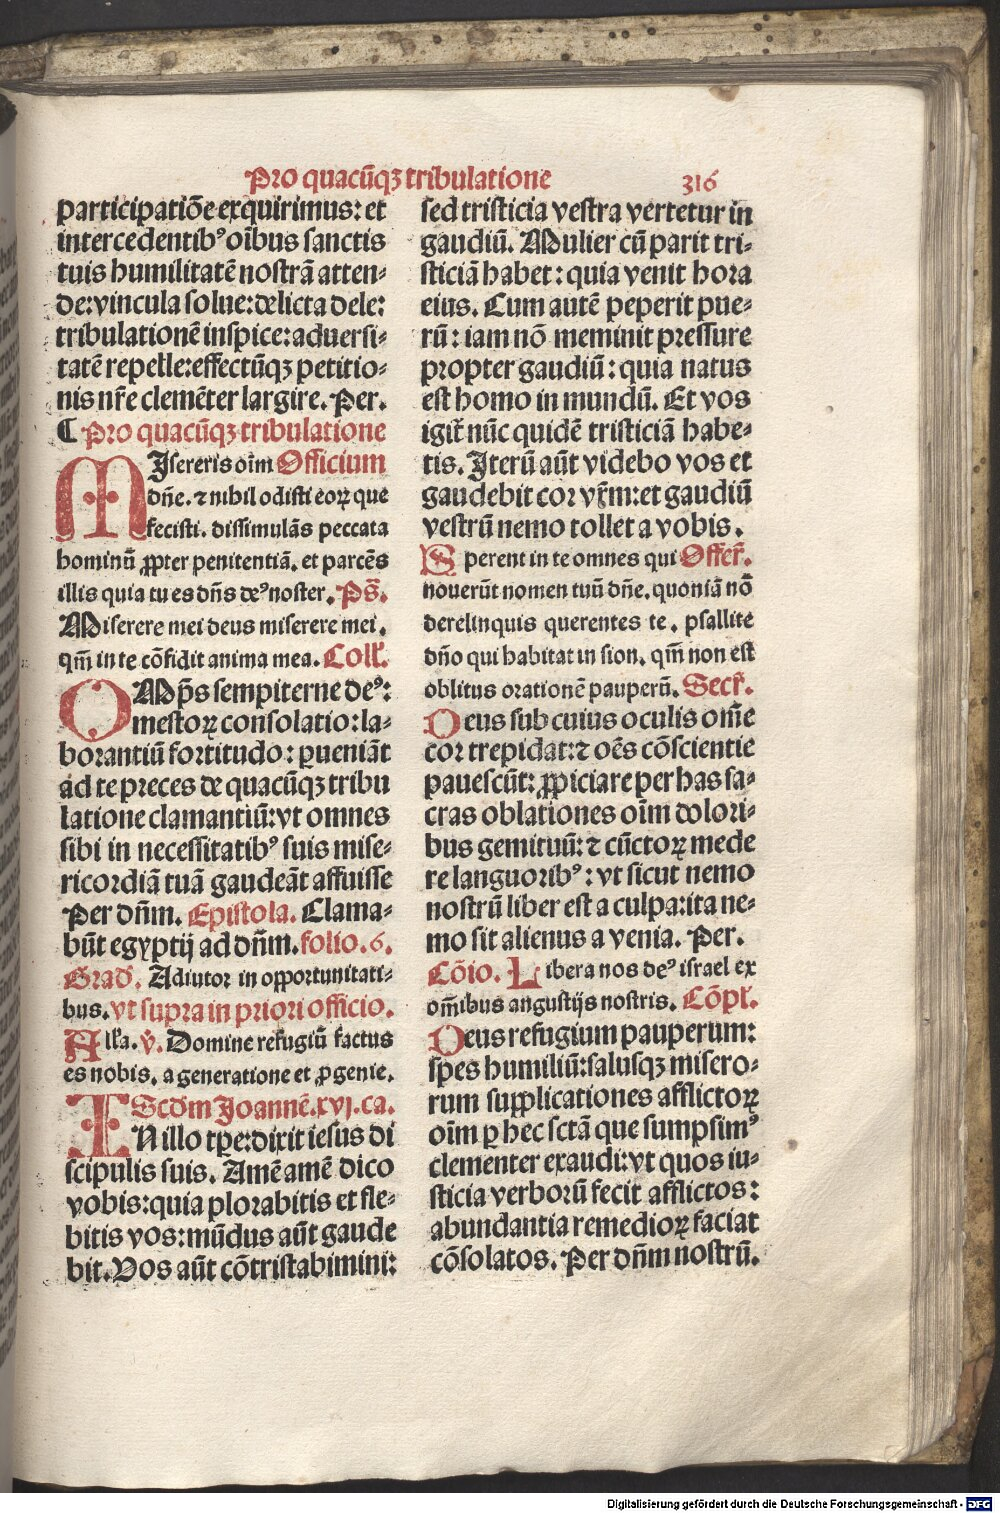 Pro quacūqꝫ tribulatione 316
participatiōe exquirimus: et
intercedentibꝰ oībus sanctis
tuis humilitatē nostrā atten-
de: vincula solue: delicta dele:
tribulationē inspice: aduersi-
tatē repelle: effectūqꝫ petitio-
nis nr̄e clemēter largire. Per.
¶ Pro quacūqꝫ tribulatione
MIsereris oīm Officium
dn̄e. ⁊ nihil odisti eoꝝ que
fecisti. dissimulās peccata
hominū ꝓpter penitentiā. et parcēs
illis quia tu es dn̄s deꝰ noster. Ps̄.
Miserere mei deus miserere mei.
qm̄ in te cōfidit anima mea. Coll̄.
OMp̄s sempiterne deꝰ:
mestoꝝ consolatio: la-
borantiū fortitudo: ꝑueniāt
ad te preces de quacūqꝫ tribu
latione clamantiū: vt omnes
sibi in necessitatibꝰ suis mise-
ricordiā tuā gaudeāt affuisse
Per dn̄m. Epistola. Clama-
būt egyptij ad dn̄m. folio. 6.
Grad̄. Adiutor in opportunitati-
bus. vt supra in priori officio.
All̄a. v̄. Domine refugiū factus
es nobis. a generatione et ꝓgenie.
Scd̄m Joannē. xvj. ca.
IN illo tp̄e: dixit iesus di
scipulis suis. Amē amē dico
vobis: quia plorabitis et fle-
bitis vos: mūdus aūt gaude
bit. Vos aūt cōtristabimini:
sed tristicia vestra vertetur in
gaudiū. Mulier cū parit tri-
sticiā habet: quia venit hora
eius. Cum autē peperit pue-
rū: iam nō meminit pressure
propter gaudiū: quia natus
est homo in mundū. Et vos
igit̄ nūc quidē tristiciā habe-
tis. Iterū aūt videbo vos et
gaudebit cor vr̄m: et gaudiū
vestrū nemo tollet a vobis.
Sperent in te omnes qui Offer̄.
nouerūt nomen tuū dn̄e. quoniā nō
derelinquis querentes te. psallite
dn̄o qui habitat in sion. qm̄ non est
oblitus orationē pauperū. Secr̄.
Deus sub cuius oculis om̄e
cor trepidat: ⁊ oēs cōscientie
pauescūt: ꝓpiciare per has sa-
cras oblationes oīm dolori-
bus gemituū: ⁊ cūctoꝝ mede
re languoribꝰ: vt sicut nemo
nostrū liber est a culpa: ita ne-
mo sit alienus a venia. Per.
Cōio. Libera nos deꝰ israel ex
om̄ibus angustijs nostris. Cōpl̄.
Deus refugium pauperum:
spes humiliū: salusqꝫ misero-
rum supplicationes afflictoꝝ
oīm ꝑ hec sctā que sumpsimꝰ
clementer exaudi: vt quos iu-
sticia verborū fecit afflictos:
abundantia remedioꝝ faciat
cōsolatos. Per dn̄m nostrū.
Digitalisierung gefördert durch die Deutsche Forschungsgemeinschaft - DFG